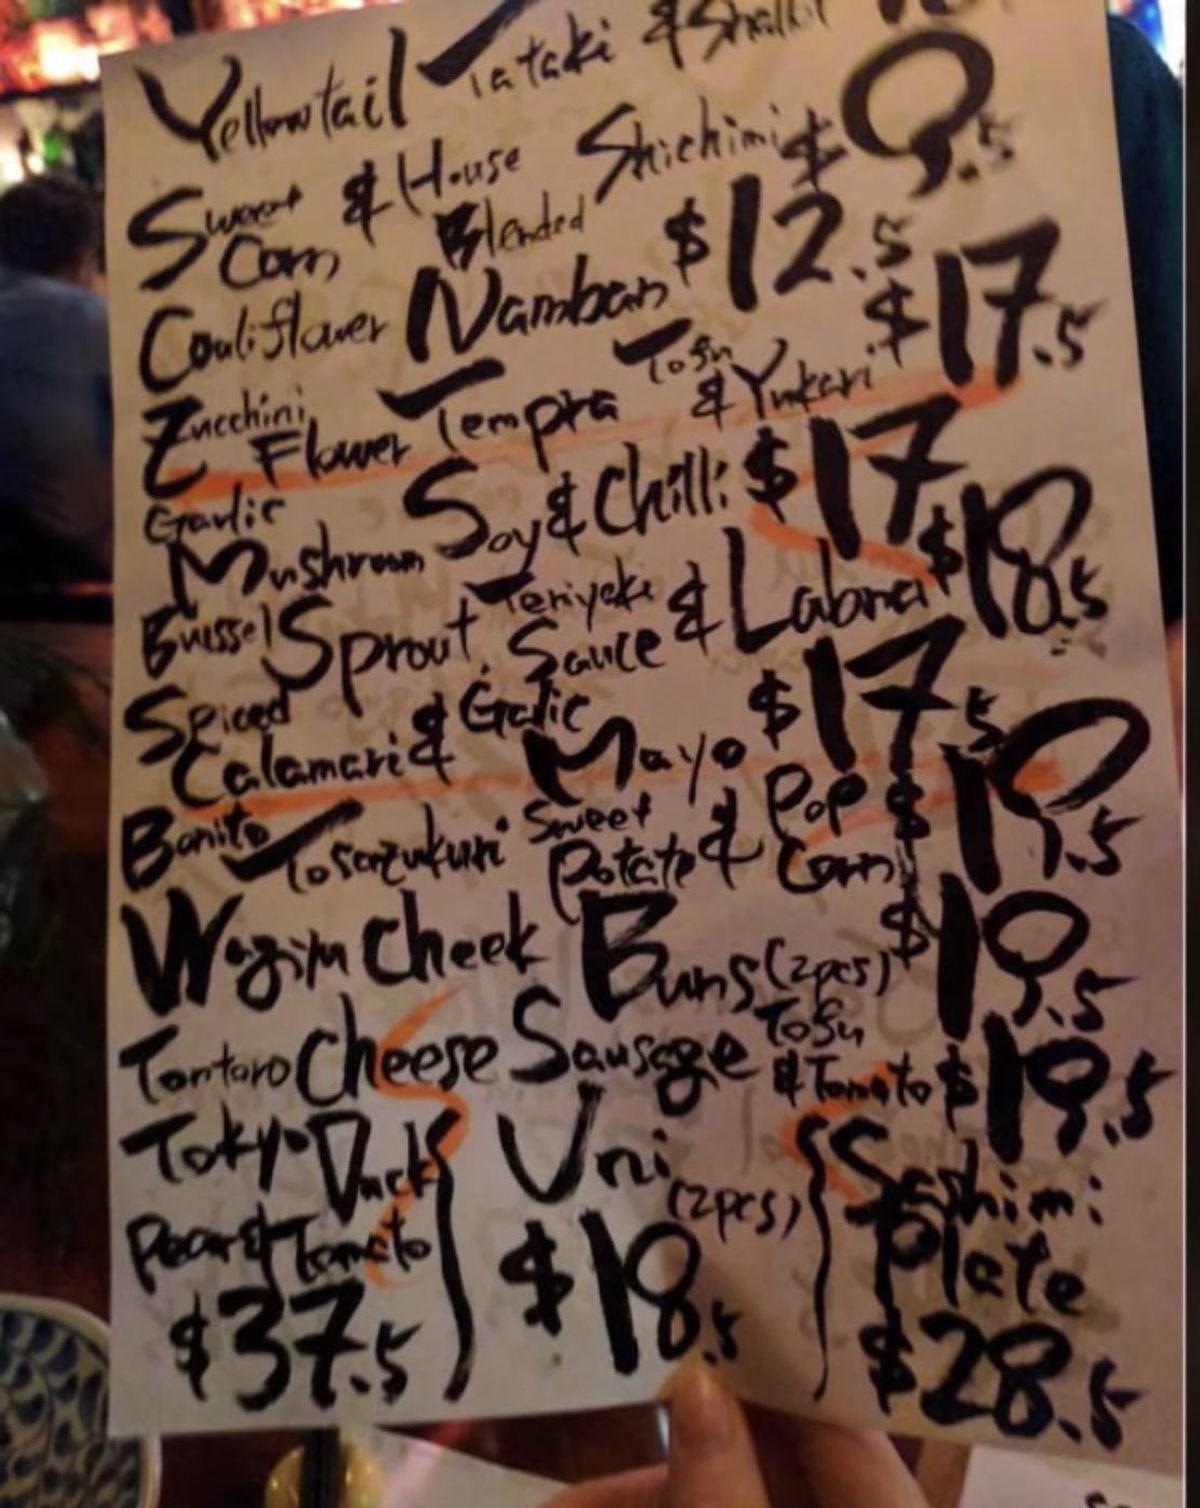 Yellowtail Tataki & Shallot
Sweet Corn & House Blended Shichimi $9.5
Cauliflower Namban $12.5
Zucchini Flower Tempra Tosu & Yukari $17.5
Garlic Mushroom Soy & Chilli $17
Brussel Sprout. Teriyaki Sauce & Labna $18.5
Spiced Calamari & Galic Mayo $17.5
Bonito Tosazukuri Sweet Potato & Pop Corn $19.5
Wagyu Cheek Buns (2pcs) $19.5
Tontoro Cheese Sausage Tosu & Tomato $19.5
Tokyo Duck
Pear & Tomato
$37.5
Uni
(2pcs)
$18.5
Sashimi
Plate
$28.5